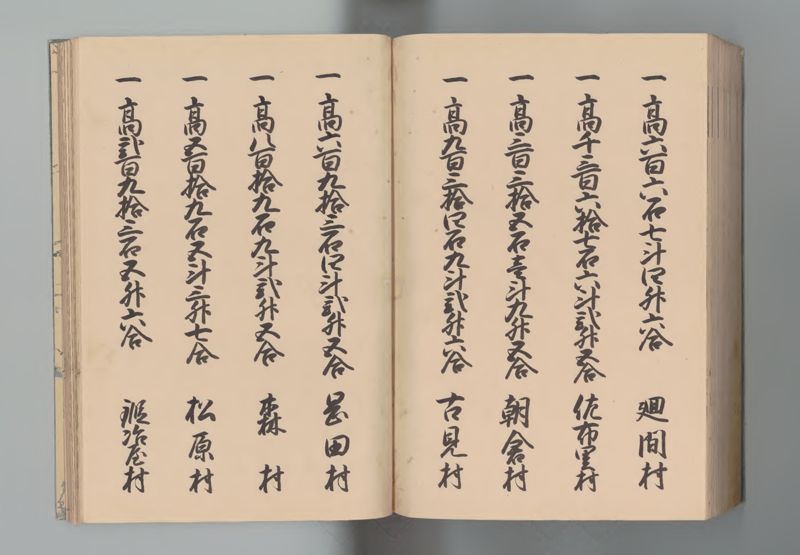 一 高六百六石七斗四升六合 廻間村
一 高千三百六拾七石六斗弐升五合 佐布里村
一 高三百三拾五石壱斗九升五合 朝倉村
一 高九百三拾四石九斗弐升六合 古見村
一 高六百九拾三石四斗弐升五合 岡田村
一 高八百拾九石九斗弐升五合 森村
一 高五百拾九石五斗三升七合 松原村
一 高弐百九拾三石五升六合 鍛冶屋村